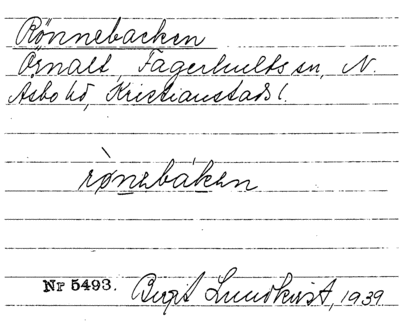 Rönnebacken
Ögnalt, Fagerhults sn, N.
Åsbo hd, Kristianstads l.
rò̱nebá̱ken
Nr 5493. Birgit Lundkvist, 1939